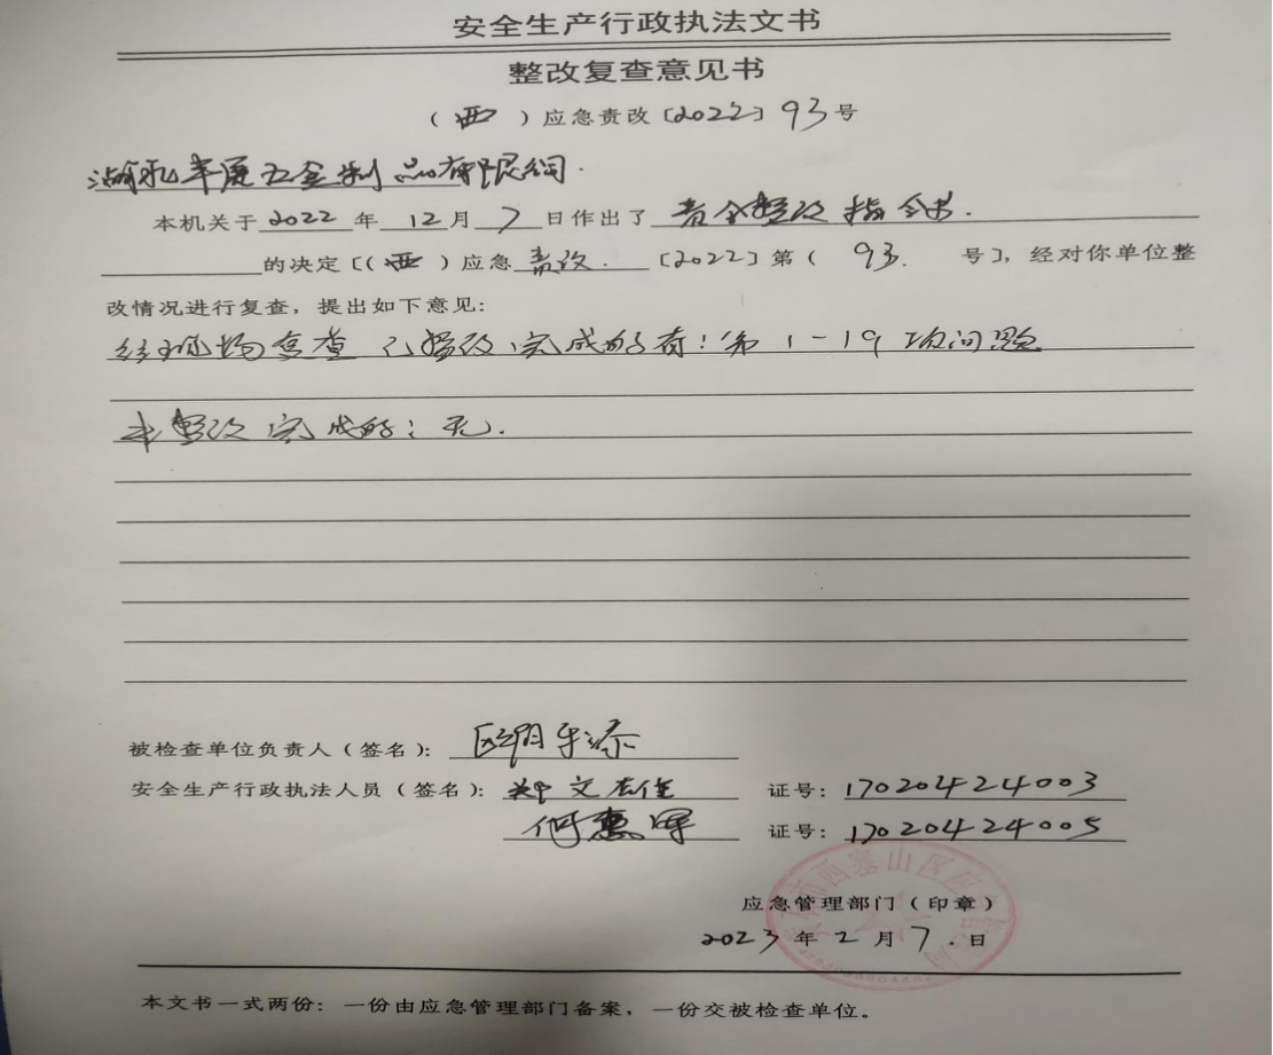 安全生产行政执法文书
整改复查意见书
（西）应急责改〔2022〕93号
湖北丰厦五金制品有限公司.
本机关于2022年12月7日作出了责令整改指令书.
的决定〔（西）应急责改.〔2022〕第（93.号〕，经对你单位整
改情况进行复查，提出如下意见：
经现场复查 已整改完成的有：第1-19项问题
未整改完成的：无.
被检查单位负责人（签名）：
安全生产行政执法人员（签名）：郑文 证号：17020424003
何惠 证号：17020424005
西塞山区应急
应急管理部门（印章）
2023年2月7.日
本文书一式两份：一份由应急管理部门备案，一份交被检查单位。